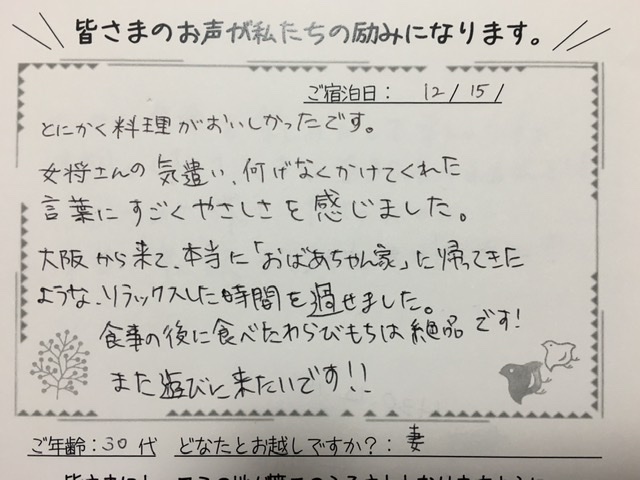 皆さまのお声が私たちの励みになります。
ご宿泊日： 12/15/
とにかく料理がおいしかったです。
女将さんの気遣い、何げなくかけてくれた
言葉にすごくやさしさを感じました。
大阪から来て、本当に「おばあちゃん家」に帰ってきた
ような、リラックスした時間を過せました。
食事の後に食べたわらびもちは絶品です!
また遊びに来たいです!!
ご年齢：30代 どなたとお越しですか？：妻